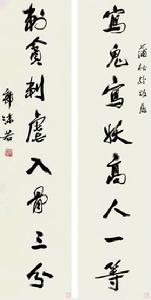 写鬼写妖高人一等
蒲松龄故居
刺贪刺虐入骨三分
郭沫若